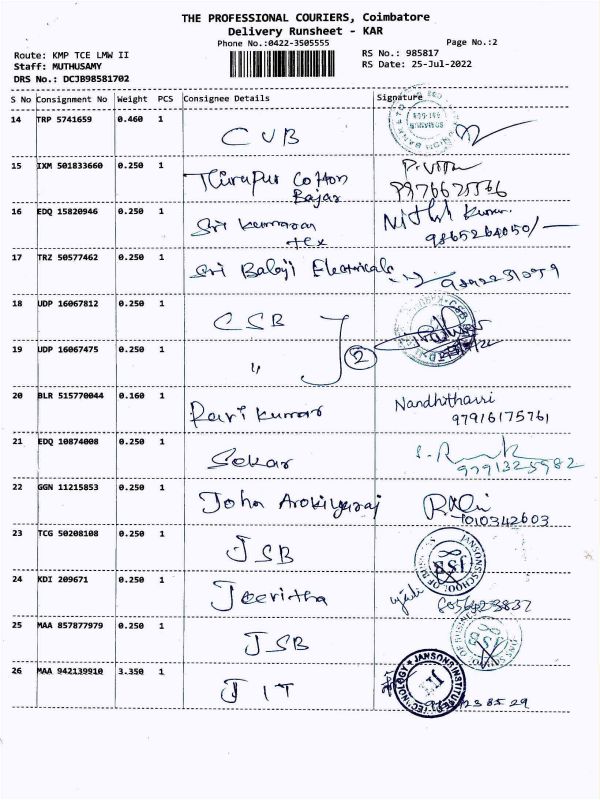 THE PROFESSIONAL COURIERS, Coimbatore
Delivery Runsheet - KAR
Phone No.:0422-3505555
Page No.:2
Route: KMP TCE LMW II
RS No.: 985817
Staff: MUTHUSAMY
RS Date: 25-Jul-2022
DRS No.: DCJB98581702
S No Consignment No Weight PCS Consignee Details Signature
14 TRP 5741659 0.460 1 CUB
15 IXM 501833660 0.250 1 Thirupur Cotton
Bajar
16 EDQ 15820946 0.250 1 Sri Kumaran Nithish Kumar
tex 9865264050/-
17 TRZ 50577462 0.250 1 Sri Balaji Electricals
18 UDP 16067812 0.250 1 CSB
19 UDP 16067475 0.250 1 " 2
20 BLR 515770044 0.160 1 Ravi Kumar
97916175761
21 EDQ 10874008 0.250 1 Sekar
9791325982
22 GGN 11215853 0.250 1 John Arokiyaraj
7010342603
23 TCG 50208108 0.250 1 JSB JANSONS SCHOOL OF BUSINESS JSB
24 KDI 209671 0.250 1 Jeevitha
25 MAA 857877979 0.250 1 JSB
26 MAA 942139910 3.350 1 JIT JANSONS INSTITUTE OF TECHNOLOGY JIT